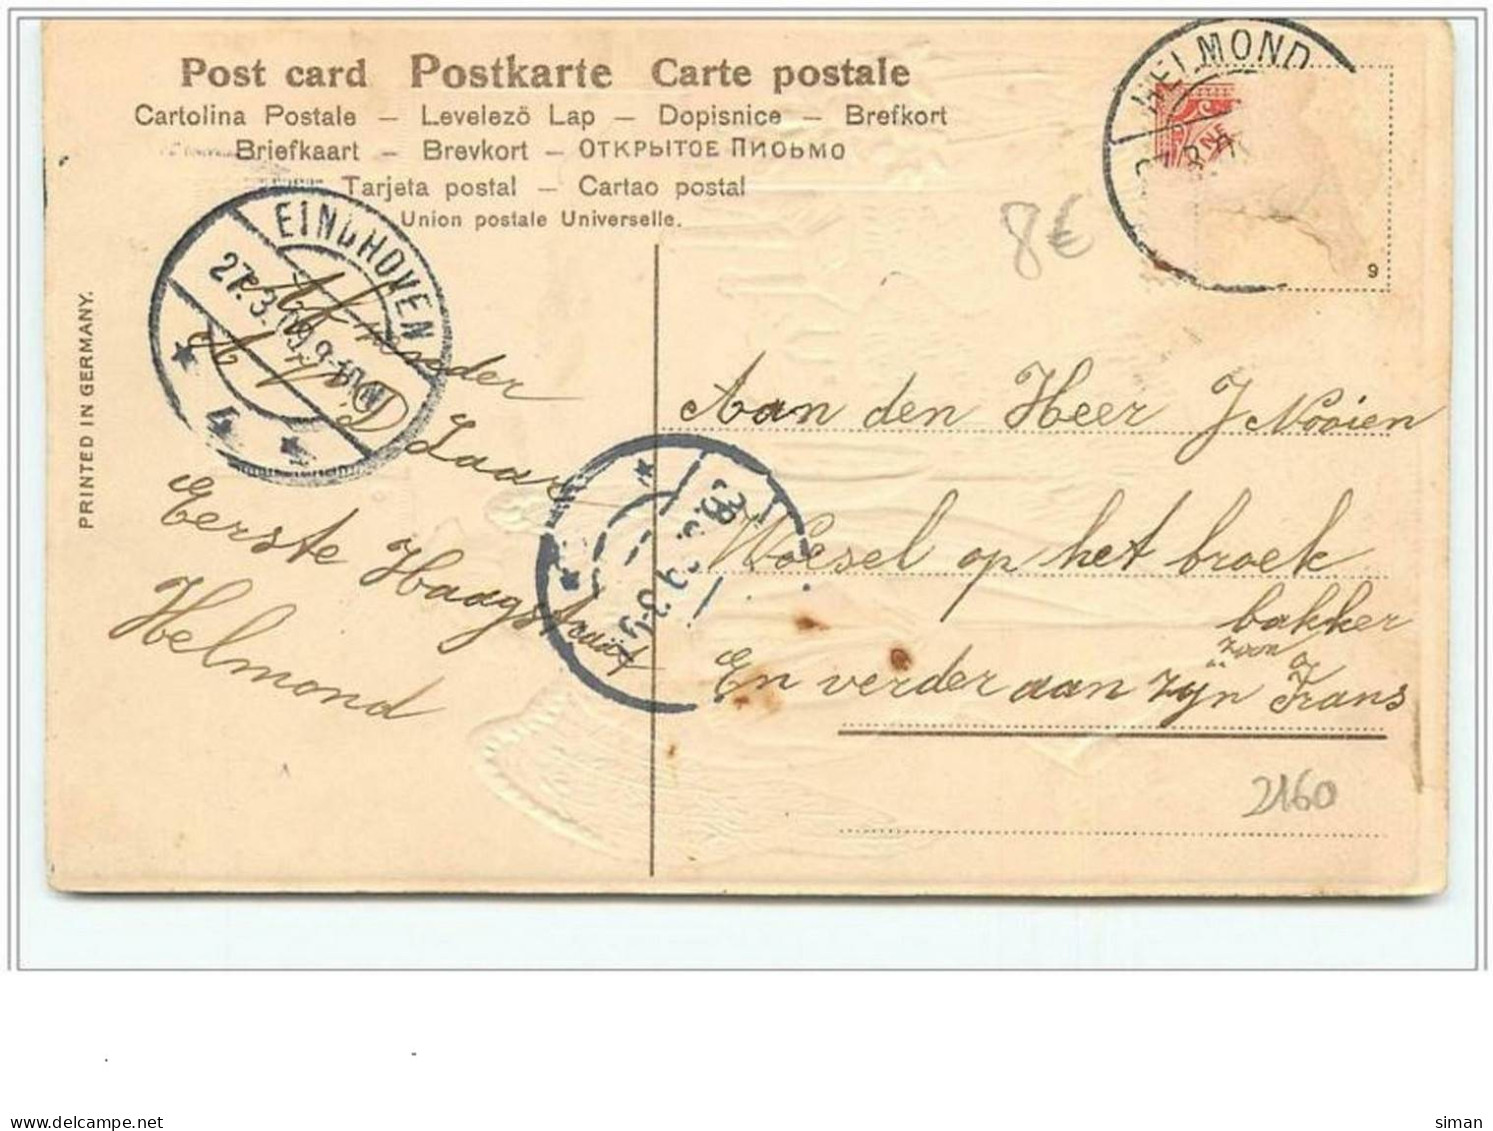 Post card Postkarte Carte postale
Cartolina Postale – Levelezö Lap – Dopisnice – Brefkort
Briefkaart – Brevkort – ОТКРЫТОЕ ПИСЬМО
Tarjeta postal – Cartao postal
Union postale Universelle.
PRINTED IN GERMANY.
HELMOND
9
8€
EINDHOVEN
27.3.
4
Afzender
Laar
Eerste Haagstraat
Helmond
Aan den Heer J Nooien
Woesel op het broek
bakker
zoon
En verder aan zijn Frans
2160
siman